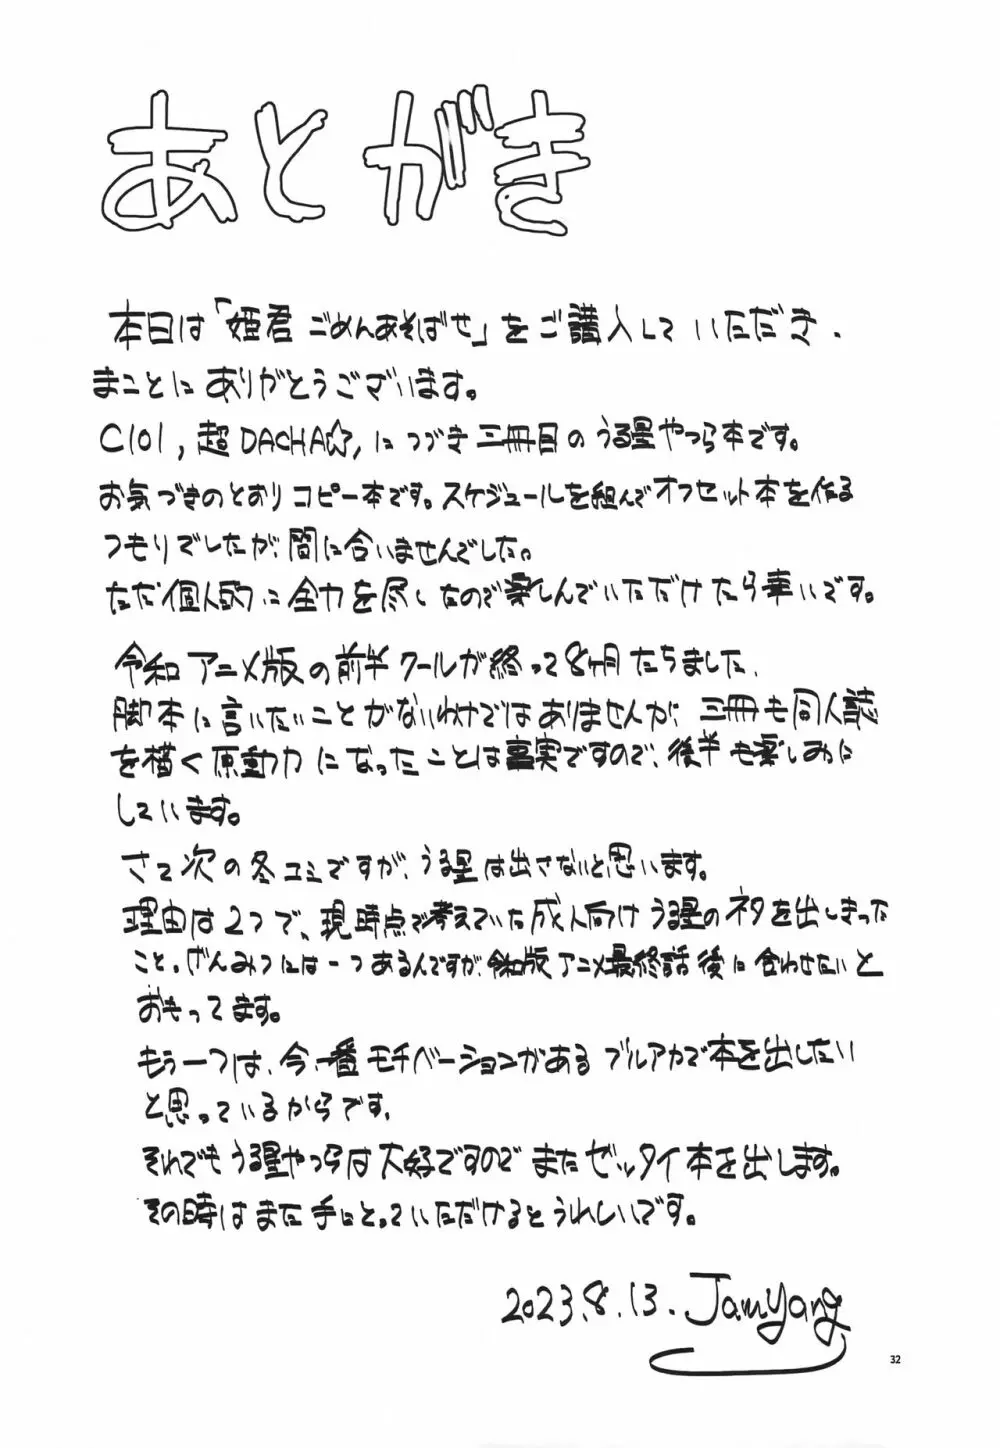 あとがき
本日は「姫君ごめんあそばせ」をご講入していただき、
まことにありがとうございます。
C101, 超DACHA☆, につづき三冊目のうる星やつら本です。
お気づきのとおりコピー本です。スケジュールを組んでオフセット本を作る
つもりでしたが、間に合いませんでした。
ただ個人的に全力を尽くしたので楽しんでいただけたら幸いです。
令和アニメ版の前半クールが終って8ヶ月たちました、
脚本に言いたいことがないわけではありませんが、三冊も同人誌
を描く原動力になったことは真実ですので、後半も楽しみに
しています。
さて次の冬コミですが、うる星は出さないと思います。
理由は2つで、現時点で考えていた成人向けうる星のネタを出しきった
こと。げんみつには一つあるんですが、令和版アニメ最終話後に合わせたいと
おもってます。
もう一つは、今一番モチベーションがあるブルアカで本を出したい
と思っているからです、
それでもうる星やつらは大好ですのでまたゼッタイ本を出します。
その時はまた手にとっていただけるとうれしいです。
2023.8.13. Jamyang
32